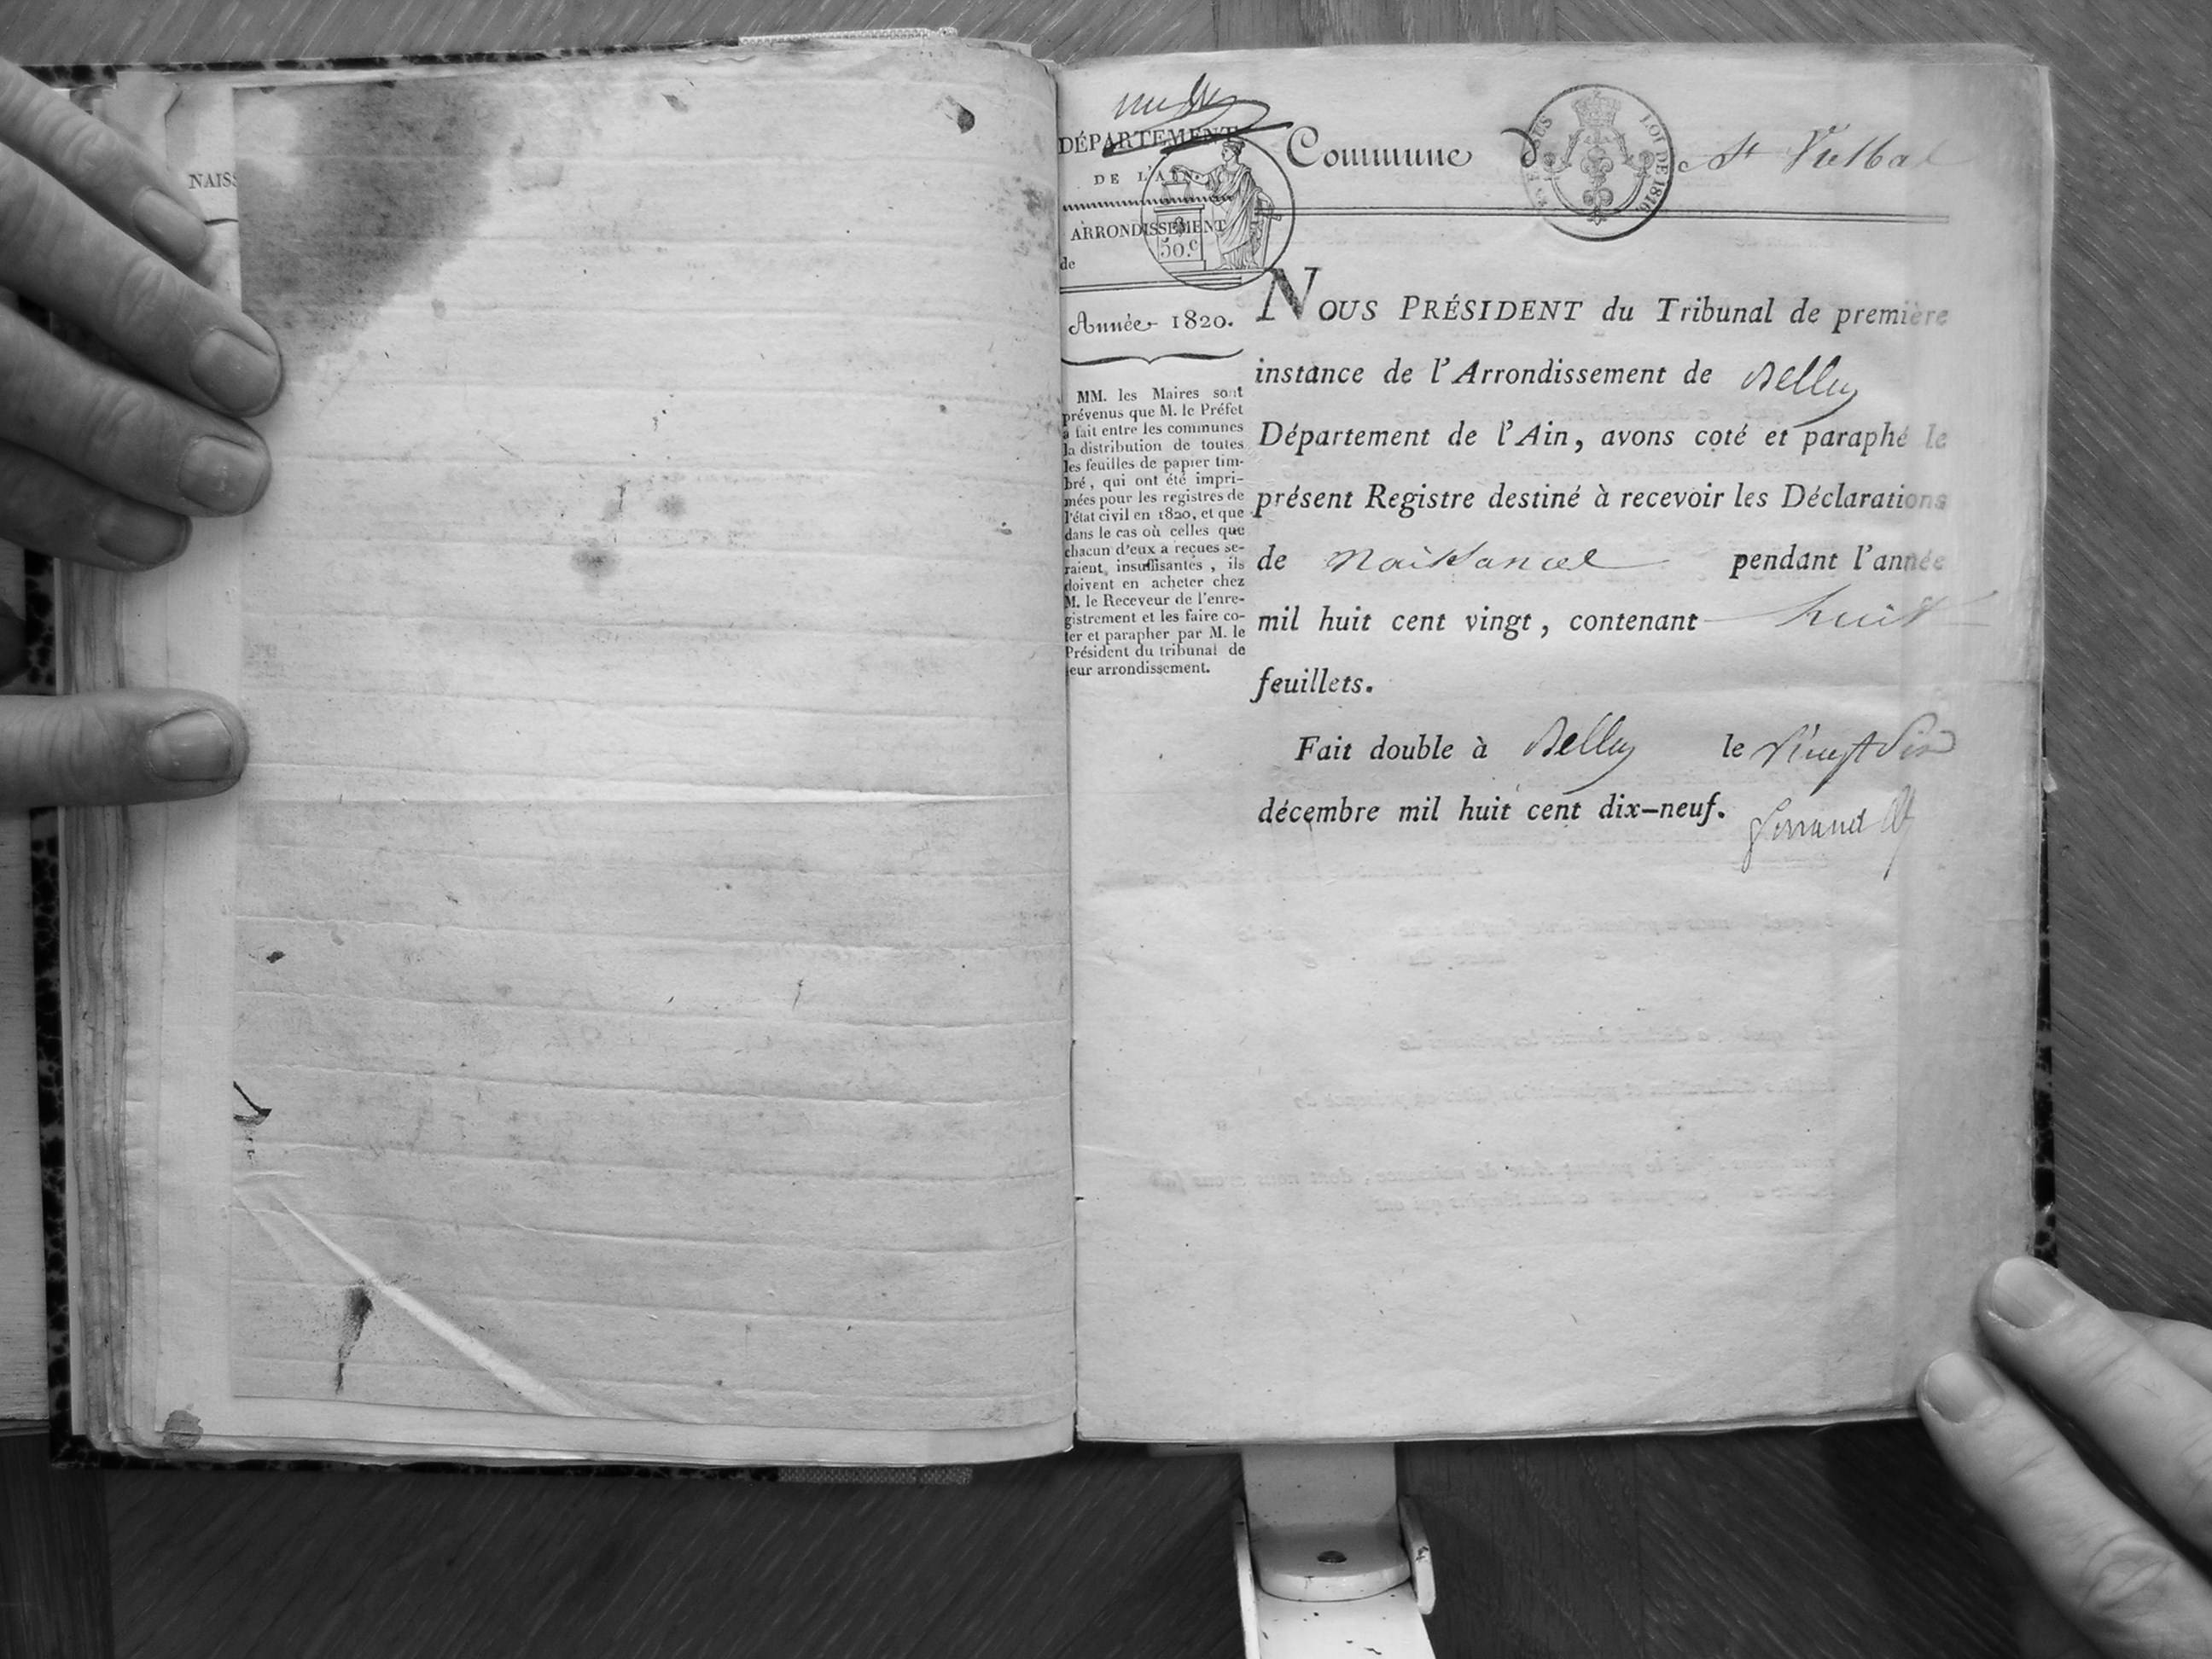 NAISS
DÉPARTEMENT
DE L'AIN.
ARRONDISSEMENT
de
50.c
Année 1820.
MM. les Maires sont
prévenus que M. le Préfet
a fait entre les communes
la distribution de toutes
les feuilles de papier tim-
bré, qui ont été impri-
mées pour les registres de
l'état civil en 1820, et que
dans le cas où celles que
chacun d'eux a reçues se-
raient insuffisantes, ils
doivent en acheter chez
M. le Receveur de l'enre-
gistrement et les faire co-
ter et parapher par M. le
Président du tribunal de
leur arrondissement.
Commune de St Vulbas
LOI DE 1816.
NOUS PRÉSIDENT du Tribunal de première
instance de l'Arrondissement de Belley
Département de l'Ain, avons coté et paraphé le
présent Registre destiné à recevoir les Déclarations
de Naissances pendant l'année
mil huit cent vingt, contenant huit
feuillets.
Fait double à Belley le vingt six
décembre mil huit cent dix-neuf.